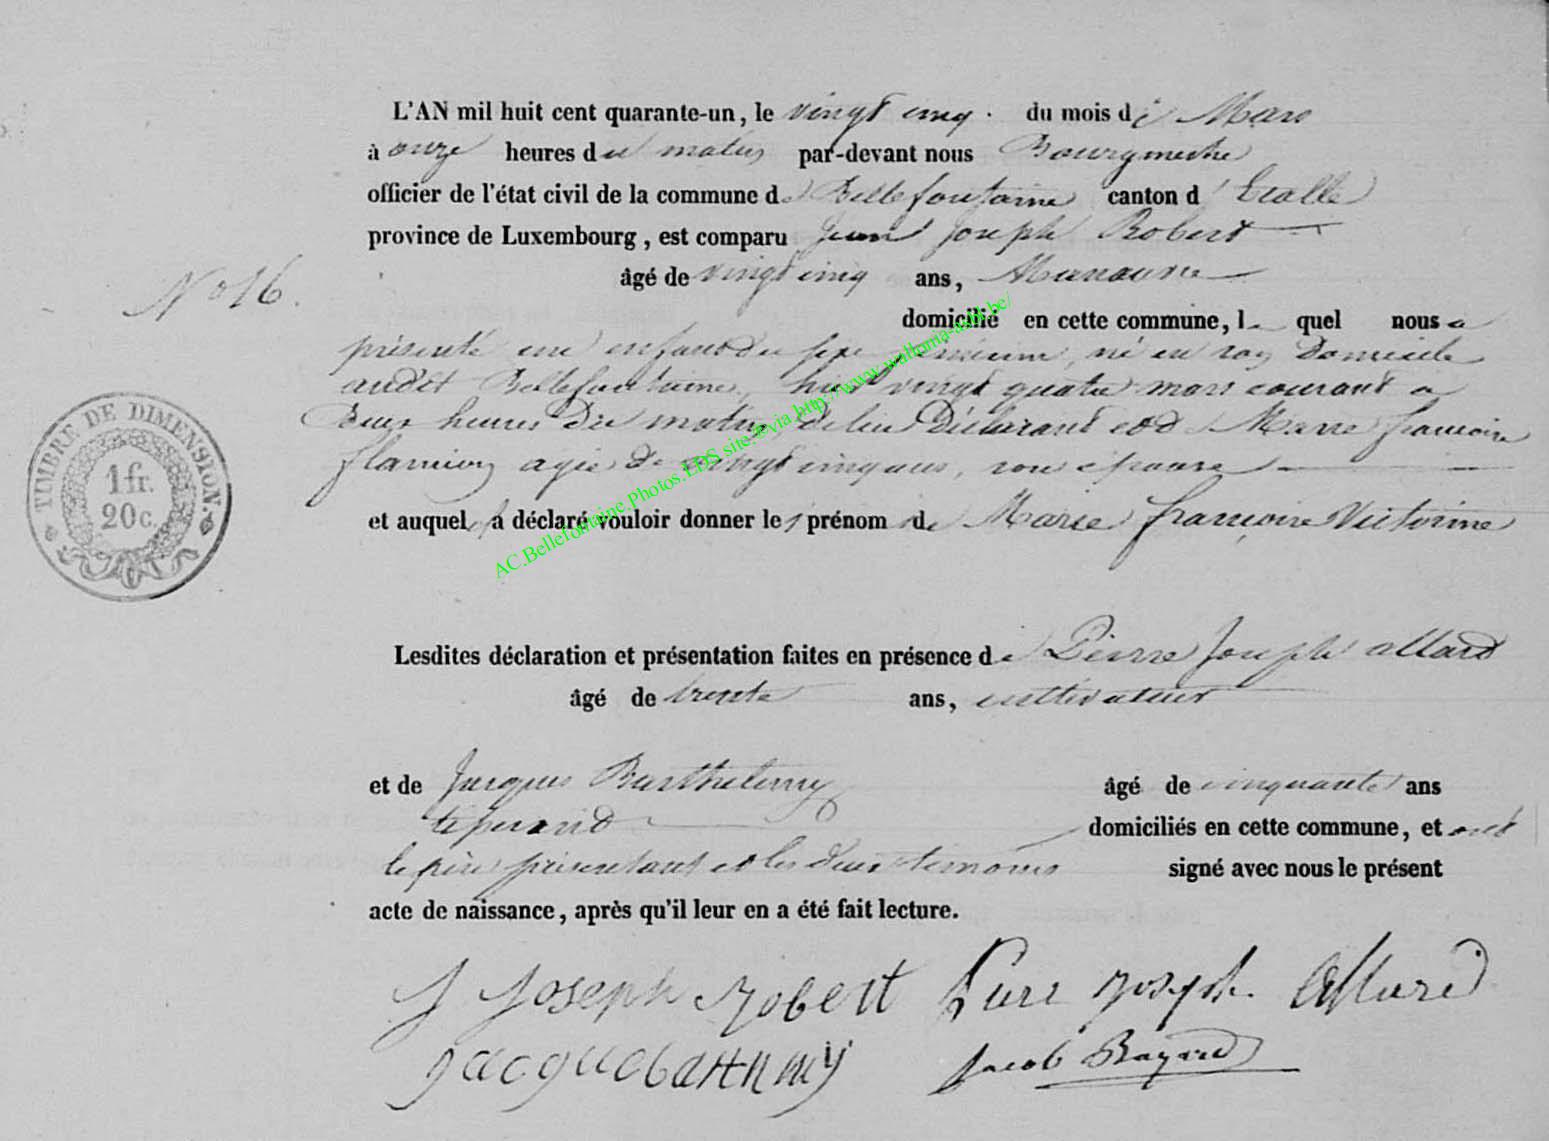 L'AN mil huit cent quarante-un, le vingt cinq. du mois de Mars
à onze heures du matin par-devant nous Bourgmestre
officier de l'état civil de la commune de Bellefontaine canton d'Etalle
province de Luxembourg, est comparu Jean Joseph Robert
No 16.
âgé de vingt cinq ans, Manouvre
domicilié en cette commune, le quel nous a
présenté un enfant du sexe né en son Domicile
audit Bellefontaine, hier vingt quatre mars courant à
Deux heures du matin, de lui Déclarant et de Marie françoise
flamion agée de vingt cinq ans, son épouse
et auquel a déclaré vouloir donner les prénom de Marie françoise Victorine
TIMBRE DE DIMENSION.
1 fr.
20 c.
AC.Bellefontaine.Photos.LDS site © via http://www.wallonia-asbl.be/
Lesdites déclaration et présentation faites en présence de Pierre Joseph allard
âgé de trente ans, cultivateur
et de Jacques Barthelemy âgé de cinquante ans
tisserand domiciliés en cette commune, et ont
le père présentant et les deux témoins signé avec nous le présent
acte de naissance, après qu'il leur en a été fait lecture.
J Joseph Robert Piere Joseph Allard
Jacob Bayard